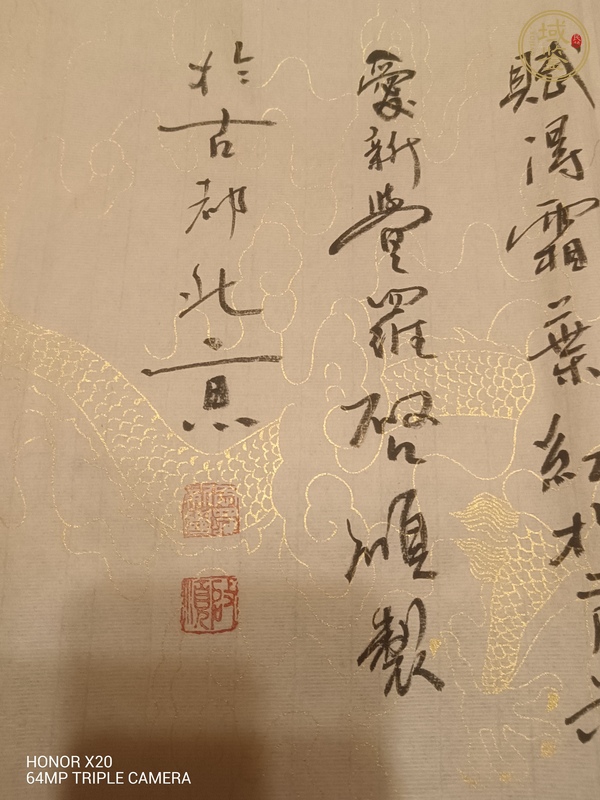 賦得霜葉紅於二月
愛新覺羅啓順製
於古都北京
啟順
HONOR X20
64MP TRIPLE CAMERA